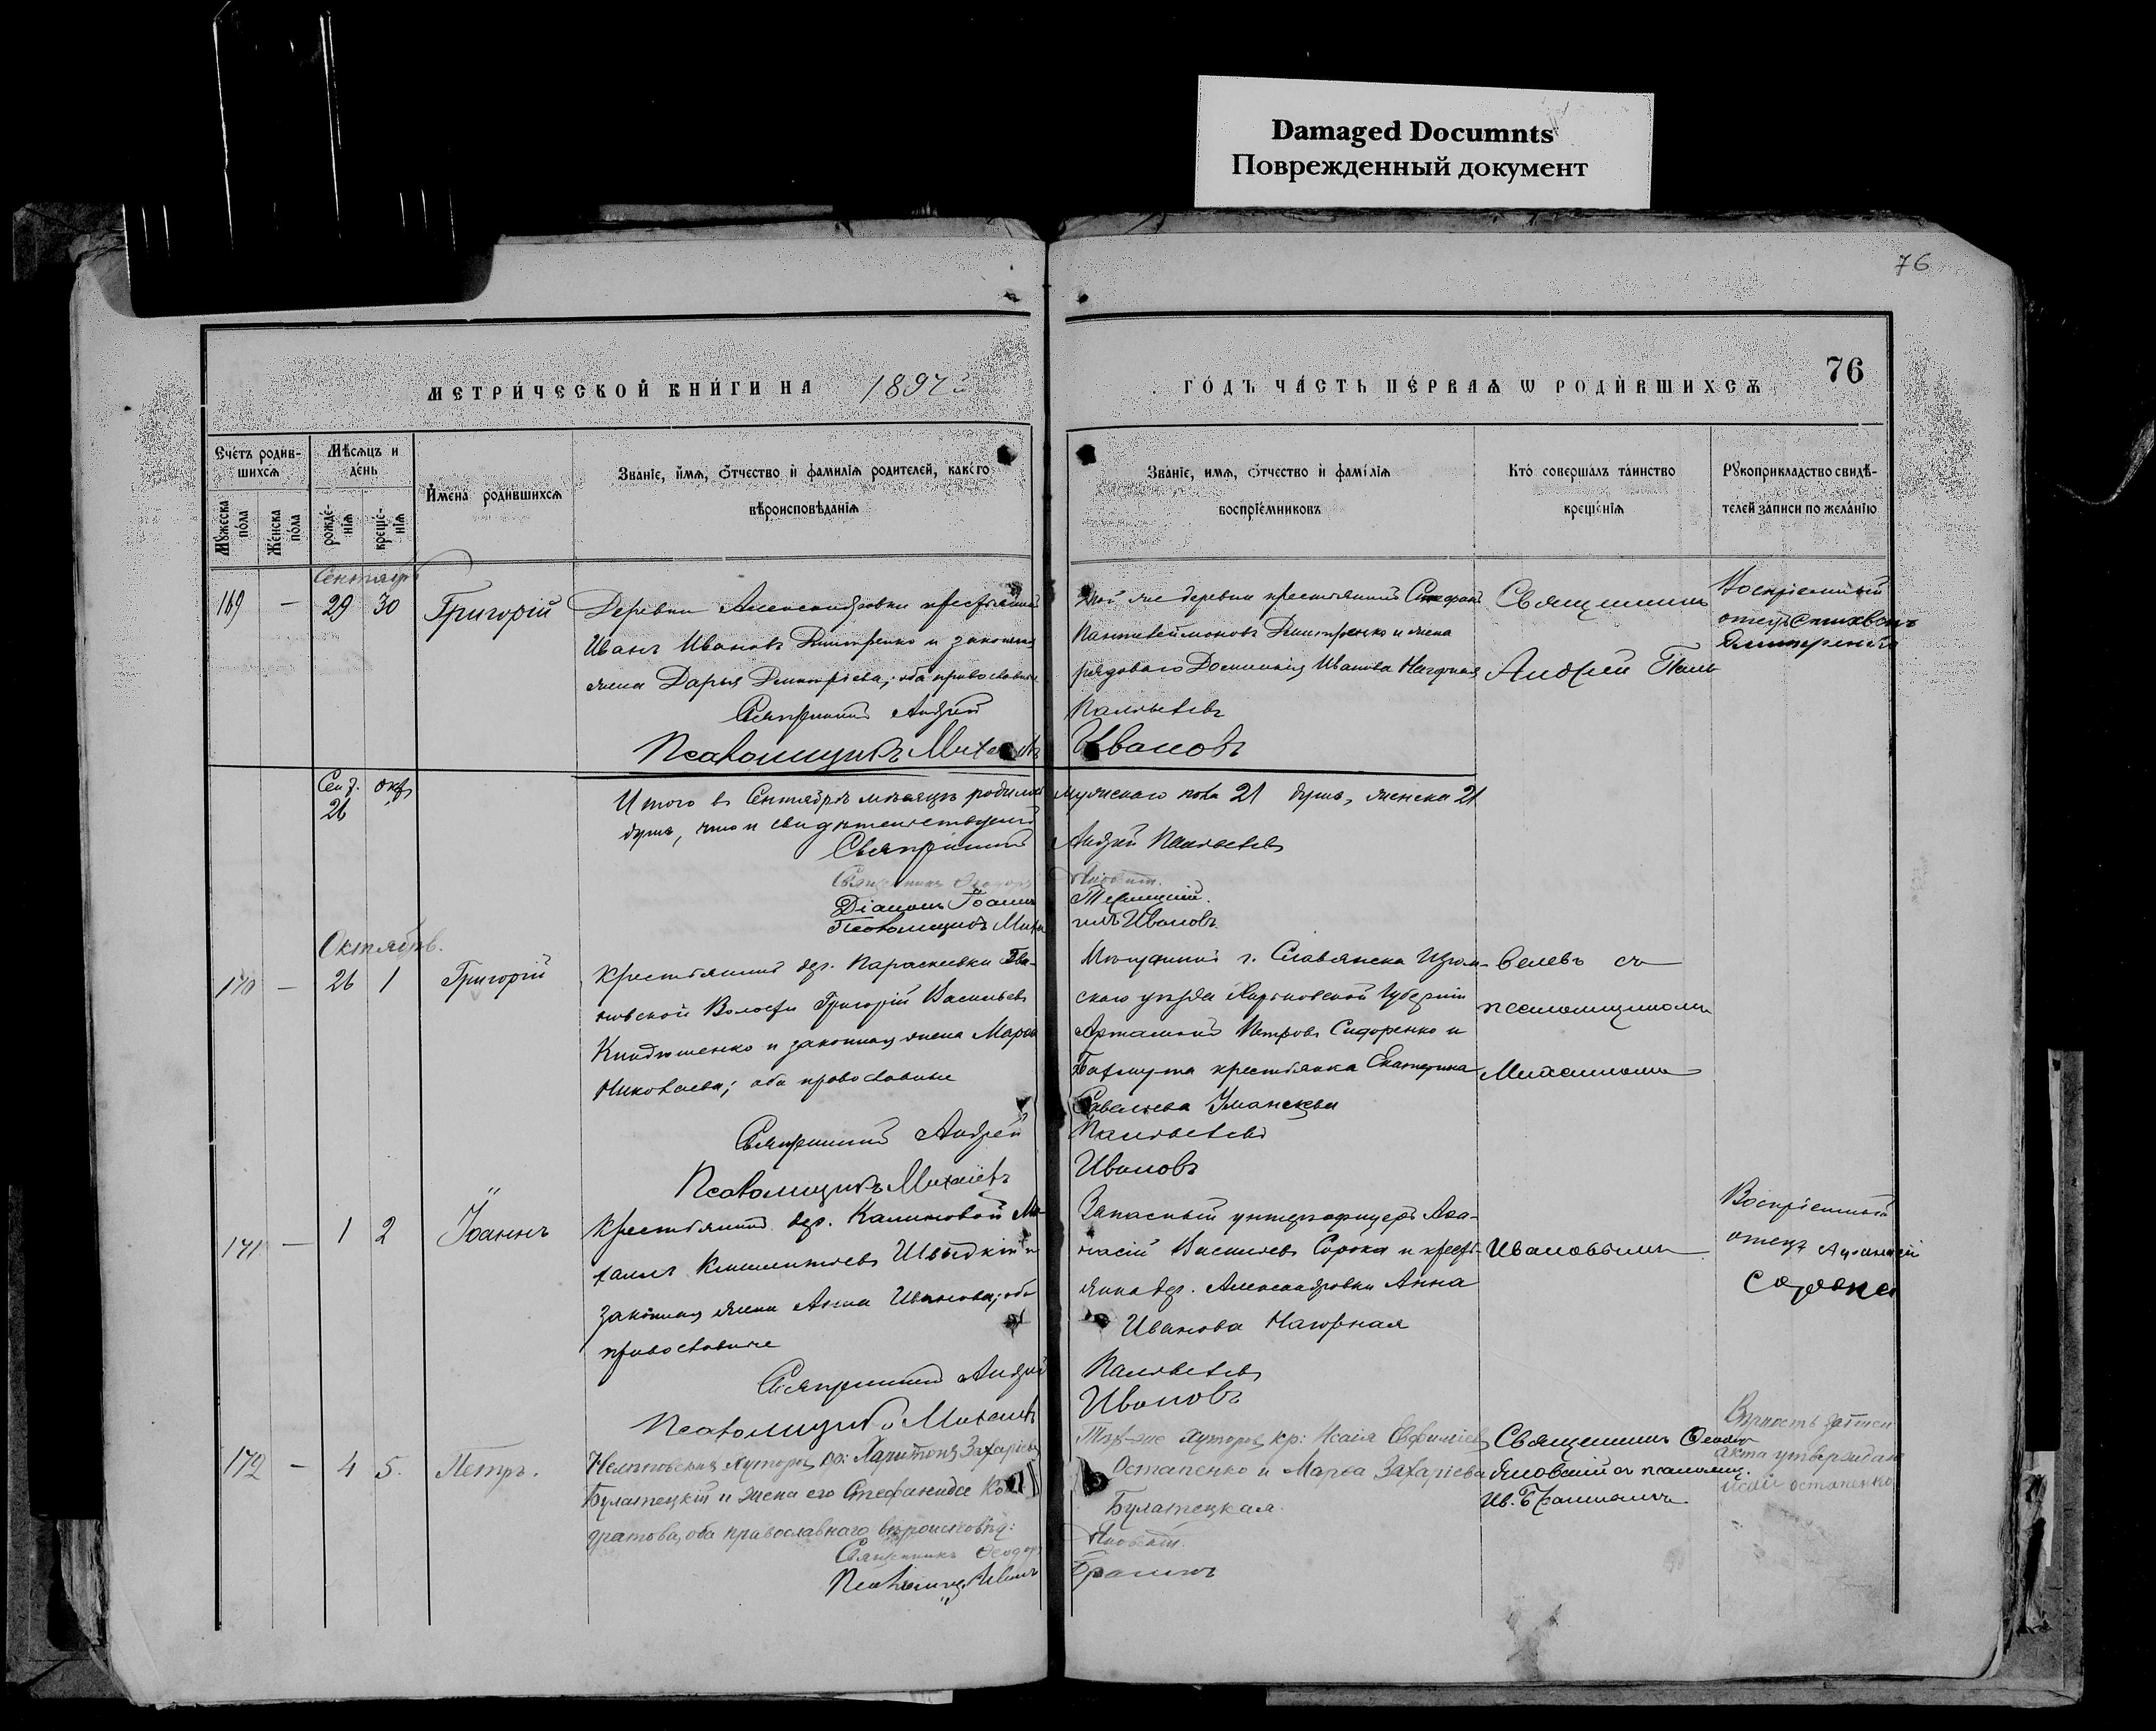 Damaged Documnts
Поврежденный документ
76
МЕТРИ́ЧЕСКОЙ КНИ́ГИ НА 1897й
ГО́ДЪ ЧА́СТЬ ПЕ́РВАѦ Ѡ РОДИ́ВШИХСѦ
76
Счéтъ родив-
шихсѧ
Мѣсѧцъ и
дéнь
И҆менà родившихсѧ
Зва́нїе, и҆́мѧ, ѻ҆́тчество и҆ фамилїѧ родителей, какóго
вѣроисповѣданїѧ
Зва́нїе, имѧ, ѻ҆́тчество и҆ фамилїѧ
воспрїе́мниковъ
Ктó совершáлъ тáинство
крещéнїѧ
Рꙋкоприкладство свидѣ-
телей записи по желáнїю
Мꙋжеска
пóла
Жéнска
пóла
рождé-
нїѧ
креще-
нїѧ
Сентябрь
169 — 29 30 Григорій
Деревни Александровки крестьянинъ
Иванъ Ивановъ Дмитренко и законная
жена Дарья Дмитріева; оба православные
Священникъ Андрей
Псаломщикъ Михаилъ
Той же деревни крестьянинъ Стефанъ
Пантелеймоновъ Дмитренко и жена
рядоваго Домникія Иванова Нагорная
Ивановъ
Священникъ
Андрей
Воспріемный
отецъ
Сен. Окт.
26
Итого въ Сентябрѣ мѣсяцѣ родилось мужескаго пола 21 душъ, женска 21
душъ, что и свидѣтельствуемъ
Священникъ Андрей
Священникъ Ѳеодоръ
Діаконъ Іоаннъ
Псаломщикъ Михаилъ Ивановъ.
Октябрь.
170 — 26 1 Григорій
Крестьянинъ дер. Парасковіевки Ива-
новской Волости Григорій Васильевъ
и законная жена Марѳа
Николаева; оба православные
Священникъ Андрей
Псаломщикъ Михаилъ
Мѣщанинъ г. Славянска Изюм-
скаго уѣзда Харьковской Губерніи
Петровъ Сидоренко и
Бахмута крестьянка Екатерина
Савельева
Ивановъ
съ
псаломщикомъ
Михаиломъ
171 — 1 2 Іоаннъ
Крестьянинъ дер. Калиновой Ми-
хаилъ Климентьевъ Швыдкій и
законная жена Анна Иванова; оба
православные
Священникъ Андрей
Псаломщикъ Михаилъ
Запасный унтерофицеръ Аѳа-
насій Васильевъ Сорока и кресть-
янка дер. Александровки Анна
Иванова Нагорная
Ивановъ
Ивановымъ
Воспріемный
отецъ
Сорока
172 — 4 5. Петръ.
Хуторовъ кр: Харитонъ Захаріевъ
Булатецкій и жена его Стефанида Кон-
дратова, оба православнаго вѣроисповѣд:
Священникъ Ѳеодоръ
Псаломщ. Иванъ
Тѣхъ-же Хуторовъ кр: Исаія Евфиміевъ
Остапенко и Марѳа Захаріева
Булатецкая.
Священникъ Ѳеодоръ
Яновскій съ псаломщ.
Ив.
Вѣрность записи
акта утверждаю
Остапенко